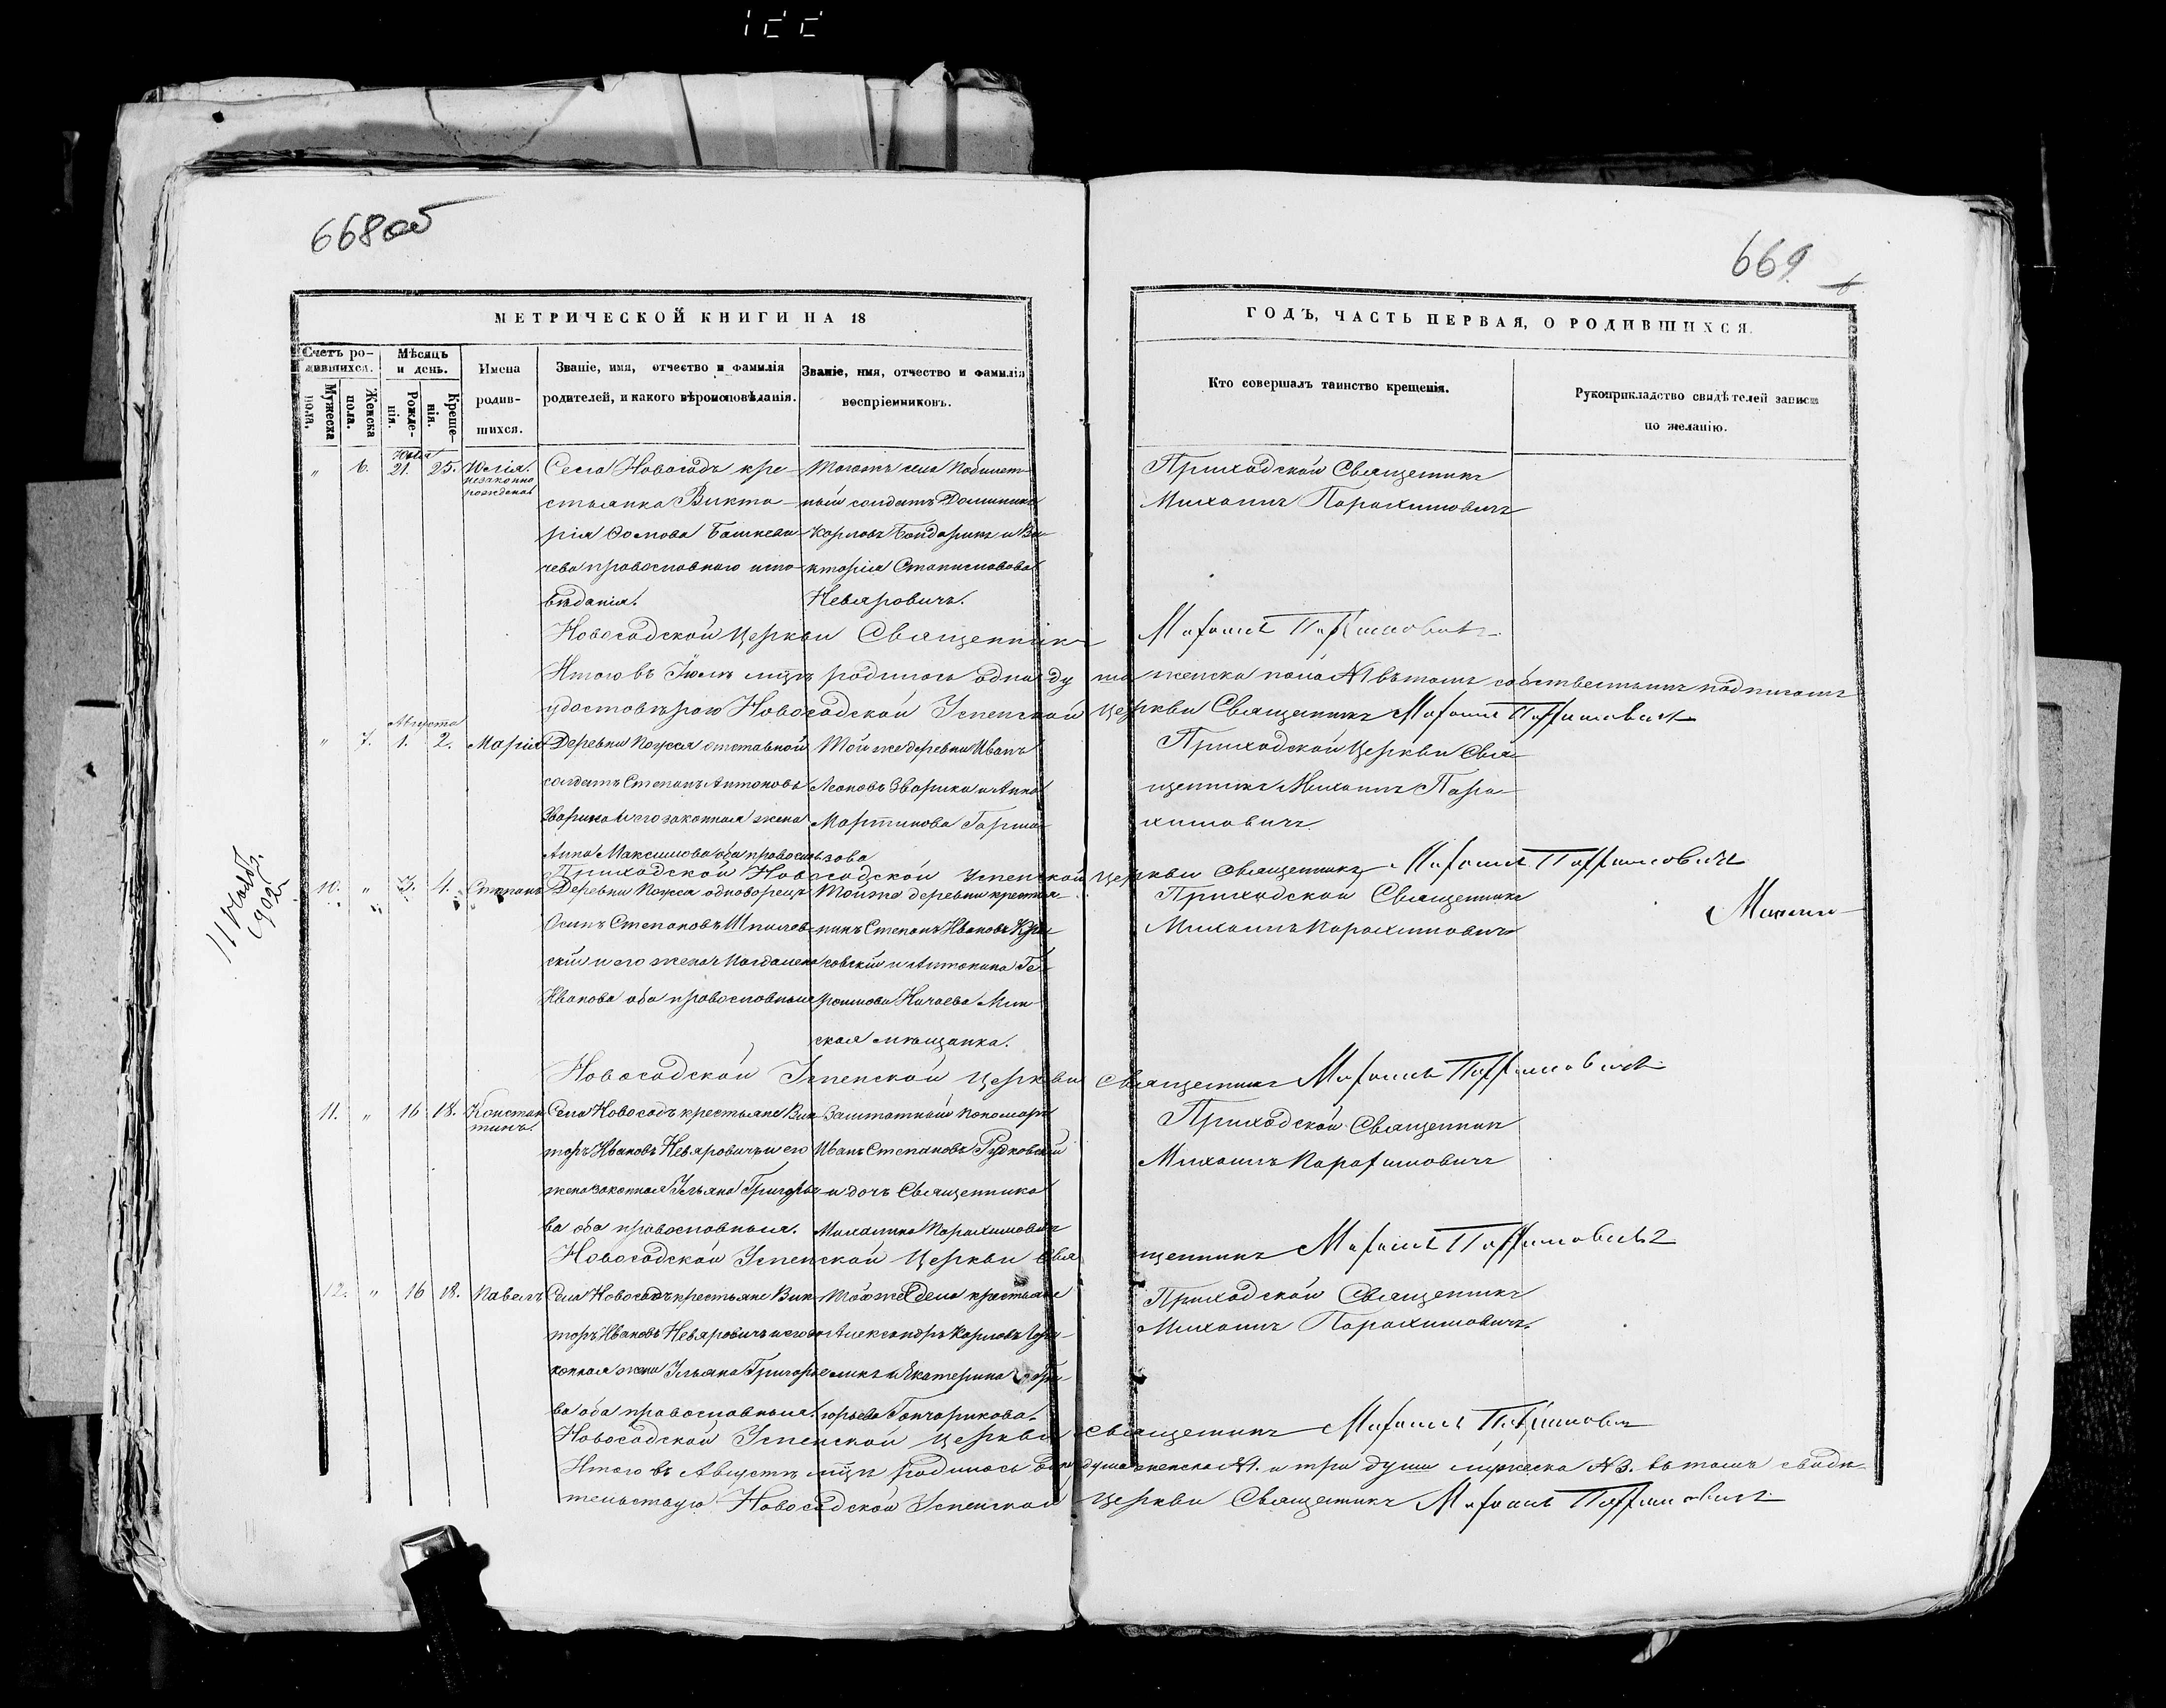 668 об
669
МЕТРИЧЕСКОЙ КНИГИ НА 18
ГОДЪ, ЧАСТЬ ПЕРВАЯ, О РОДИВШИХСЯ.
Счетъ ро-
дившихся.
Мужеска
пола.
Женска
пола.
Мѣсяцъ
и день.
Рожде-
нія.
Креще-
нія.
Имена
родив-
шихся.
Званіе, имя, отчество и фамилія
родителей, и какого вѣроисповѣданія.
Званіе, имя, отчество и фамилія
воспріемниковъ.
Кто совершалъ таинство крещенія.
Рукоприкладство свидѣтелей записи
по желанію.
Юлія
„ 6. 21. 25. Юлія.
незаконно
рожденая
Села Новосадъ кре-
стьянка Викто-
рія Ѳомова Башкеви-
чева православнаго испо-
вѣданія.
Тогожъ села
солдатъ Доминикъ
Карловъ Бондарикъ и Ви-
кторія Станиславова
Невяровичъ.
Приходской Священникъ
Михаилъ Парахимовичъ
Новосадской Церкви Священникъ Михаилъ Парахимовичъ
Итого въ Іюлѣ мцѣ родилась одна душа женска пола №1 въ томъ собственнымъ подписомъ
удостовѣряю Новосадской Успенской Церкви Священникъ Михаилъ Парахимовичъ
Августа
„ 7. 1. 2. Марія
Деревни отставной
солдатъ Степанъ Антоновъ
Зварика и его законная жена
Анна Максимова оба правосл.
Той же деревни Иванъ
Леоновъ Зварика и Анна
Мартинова
зова
Приходской Церкви Свя-
щенникъ Михаилъ Пара-
химовичъ
Приходской Новосадской Успенской Церкви Священникъ Михаилъ Парахимовичъ
11 Нояб.
1902
10. „ 3. 4. Степанъ
Деревни однодворецъ
Осипъ Степановъ
скій и его жена Магдалена
Иванова оба православныя
Тойже деревни крестья-
нинъ Степанъ Ивановъ
совскій и Антонина Ге-
Мин-
ская мѣщанка.
Приходской Священникъ
Михаилъ Парахимовичъ
Новосадской Успенской Церкви Священникъ Михаилъ Парахимовичъ
11. „ 16 18. Констан-
тинъ.
Села Новосадъ крестьяне Вик-
торъ Ивановъ Невяровичъ и его
жена законная Ульяна Григорье-
ва оба православныя.
Заштатный пономарь
Иванъ Степановъ Рудковскій
и дочь Священника
Михалина Парахимовичъ
Приходской Священникъ
Михаилъ Парахимовичъ
Новосадской Успенской Церкви Священникъ Михаилъ Парахимовичъ
12. „ 16 18. Павелъ
Села Новосадъ крестьяне Вик-
торъ Ивановъ Невяровичъ и его за-
конная жена Ульяна Григорье-
ва оба православныя.
Тогоже Села крестьяне
Александръ Карловъ
и Екатерина Гри-
горьева Гончарикова.
Приходской Священникъ
Михаилъ Парахимовичъ.
Новосадской Успенской Церкви Священникъ Михаилъ Парахимовичъ
Итого въ Августѣ мцѣ родилось одна душа женска №1. и три души мужеска №3. въ томъ свидѣ-
тельствую Новосадской Успенской Церкви Священникъ Михаилъ Парахимовичъ